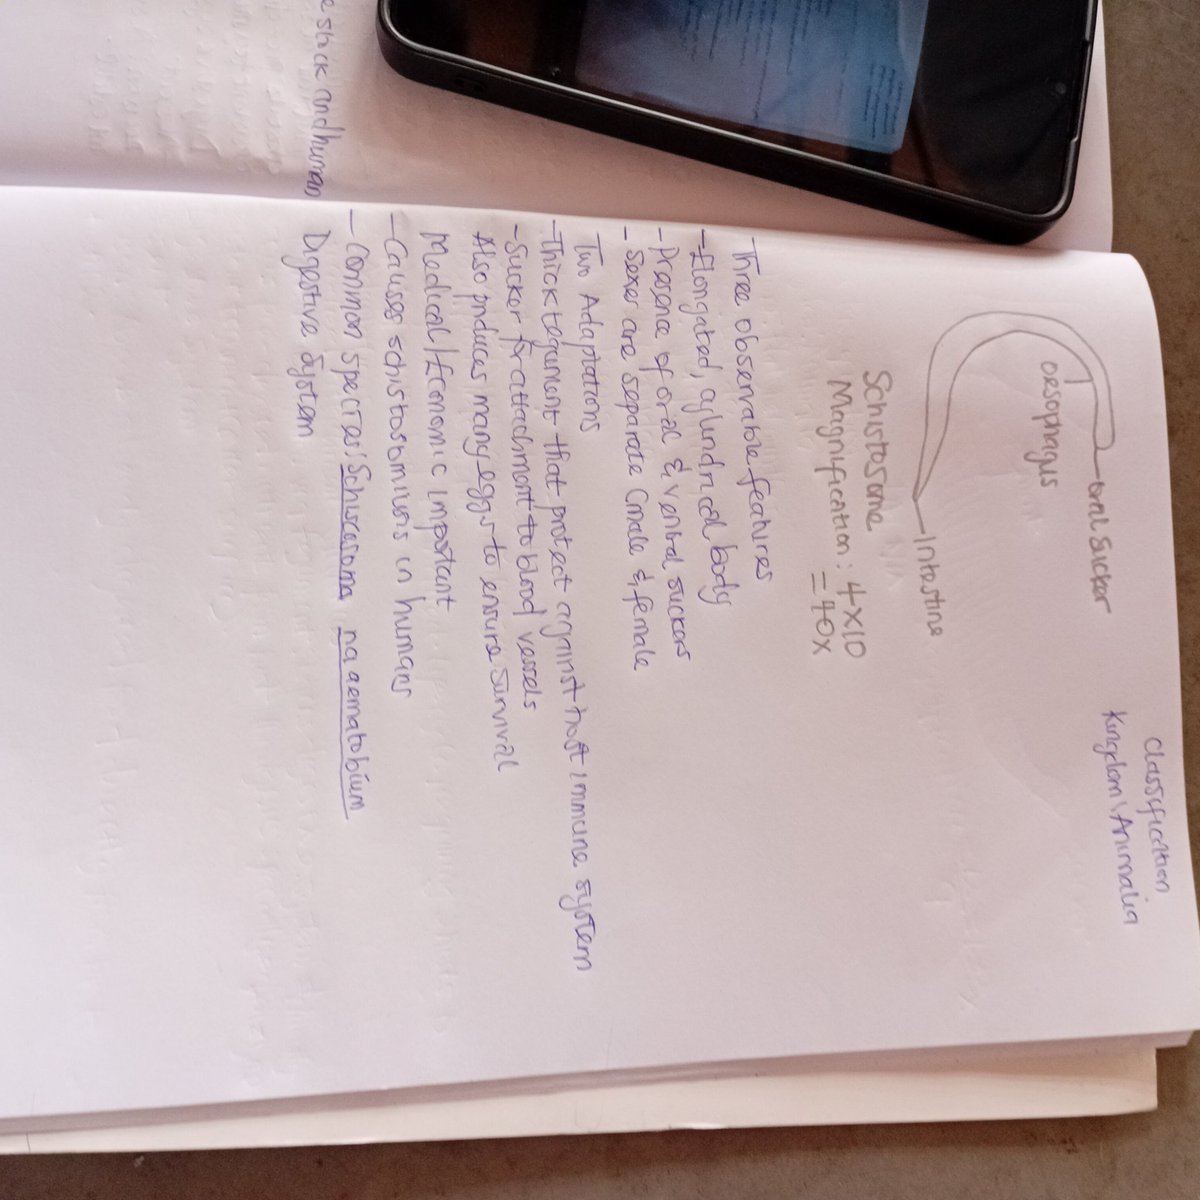 Classification
Kingdom: Animalia
Oral Sucker
Oesophagus
Intestine
Schistosome
Magnification: 4x10
=40x
Three observable features
-Elongated, cylindrical body
-Presence of oral & ventral suckers
-Sexes are separate (male & female
Two Adaptations
-Thick tegument that protect against host immune system
-Sucker for attachment to blood vessels
Also produces many eggs to ensure survival
Medical/Economic important
-Causes schistosomiasis in humans
-Common species: Schiscasoma naaematobium
Digestive System
estick and human